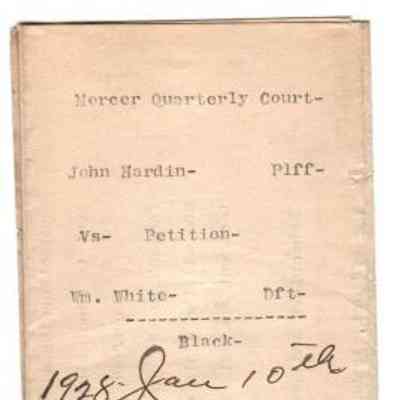 Mercer Quarterly Court-
John Hardin- Plff-
Vs- Petition-
Wm. White- Dft-
-----------------
Black-
1928 Jan 10th